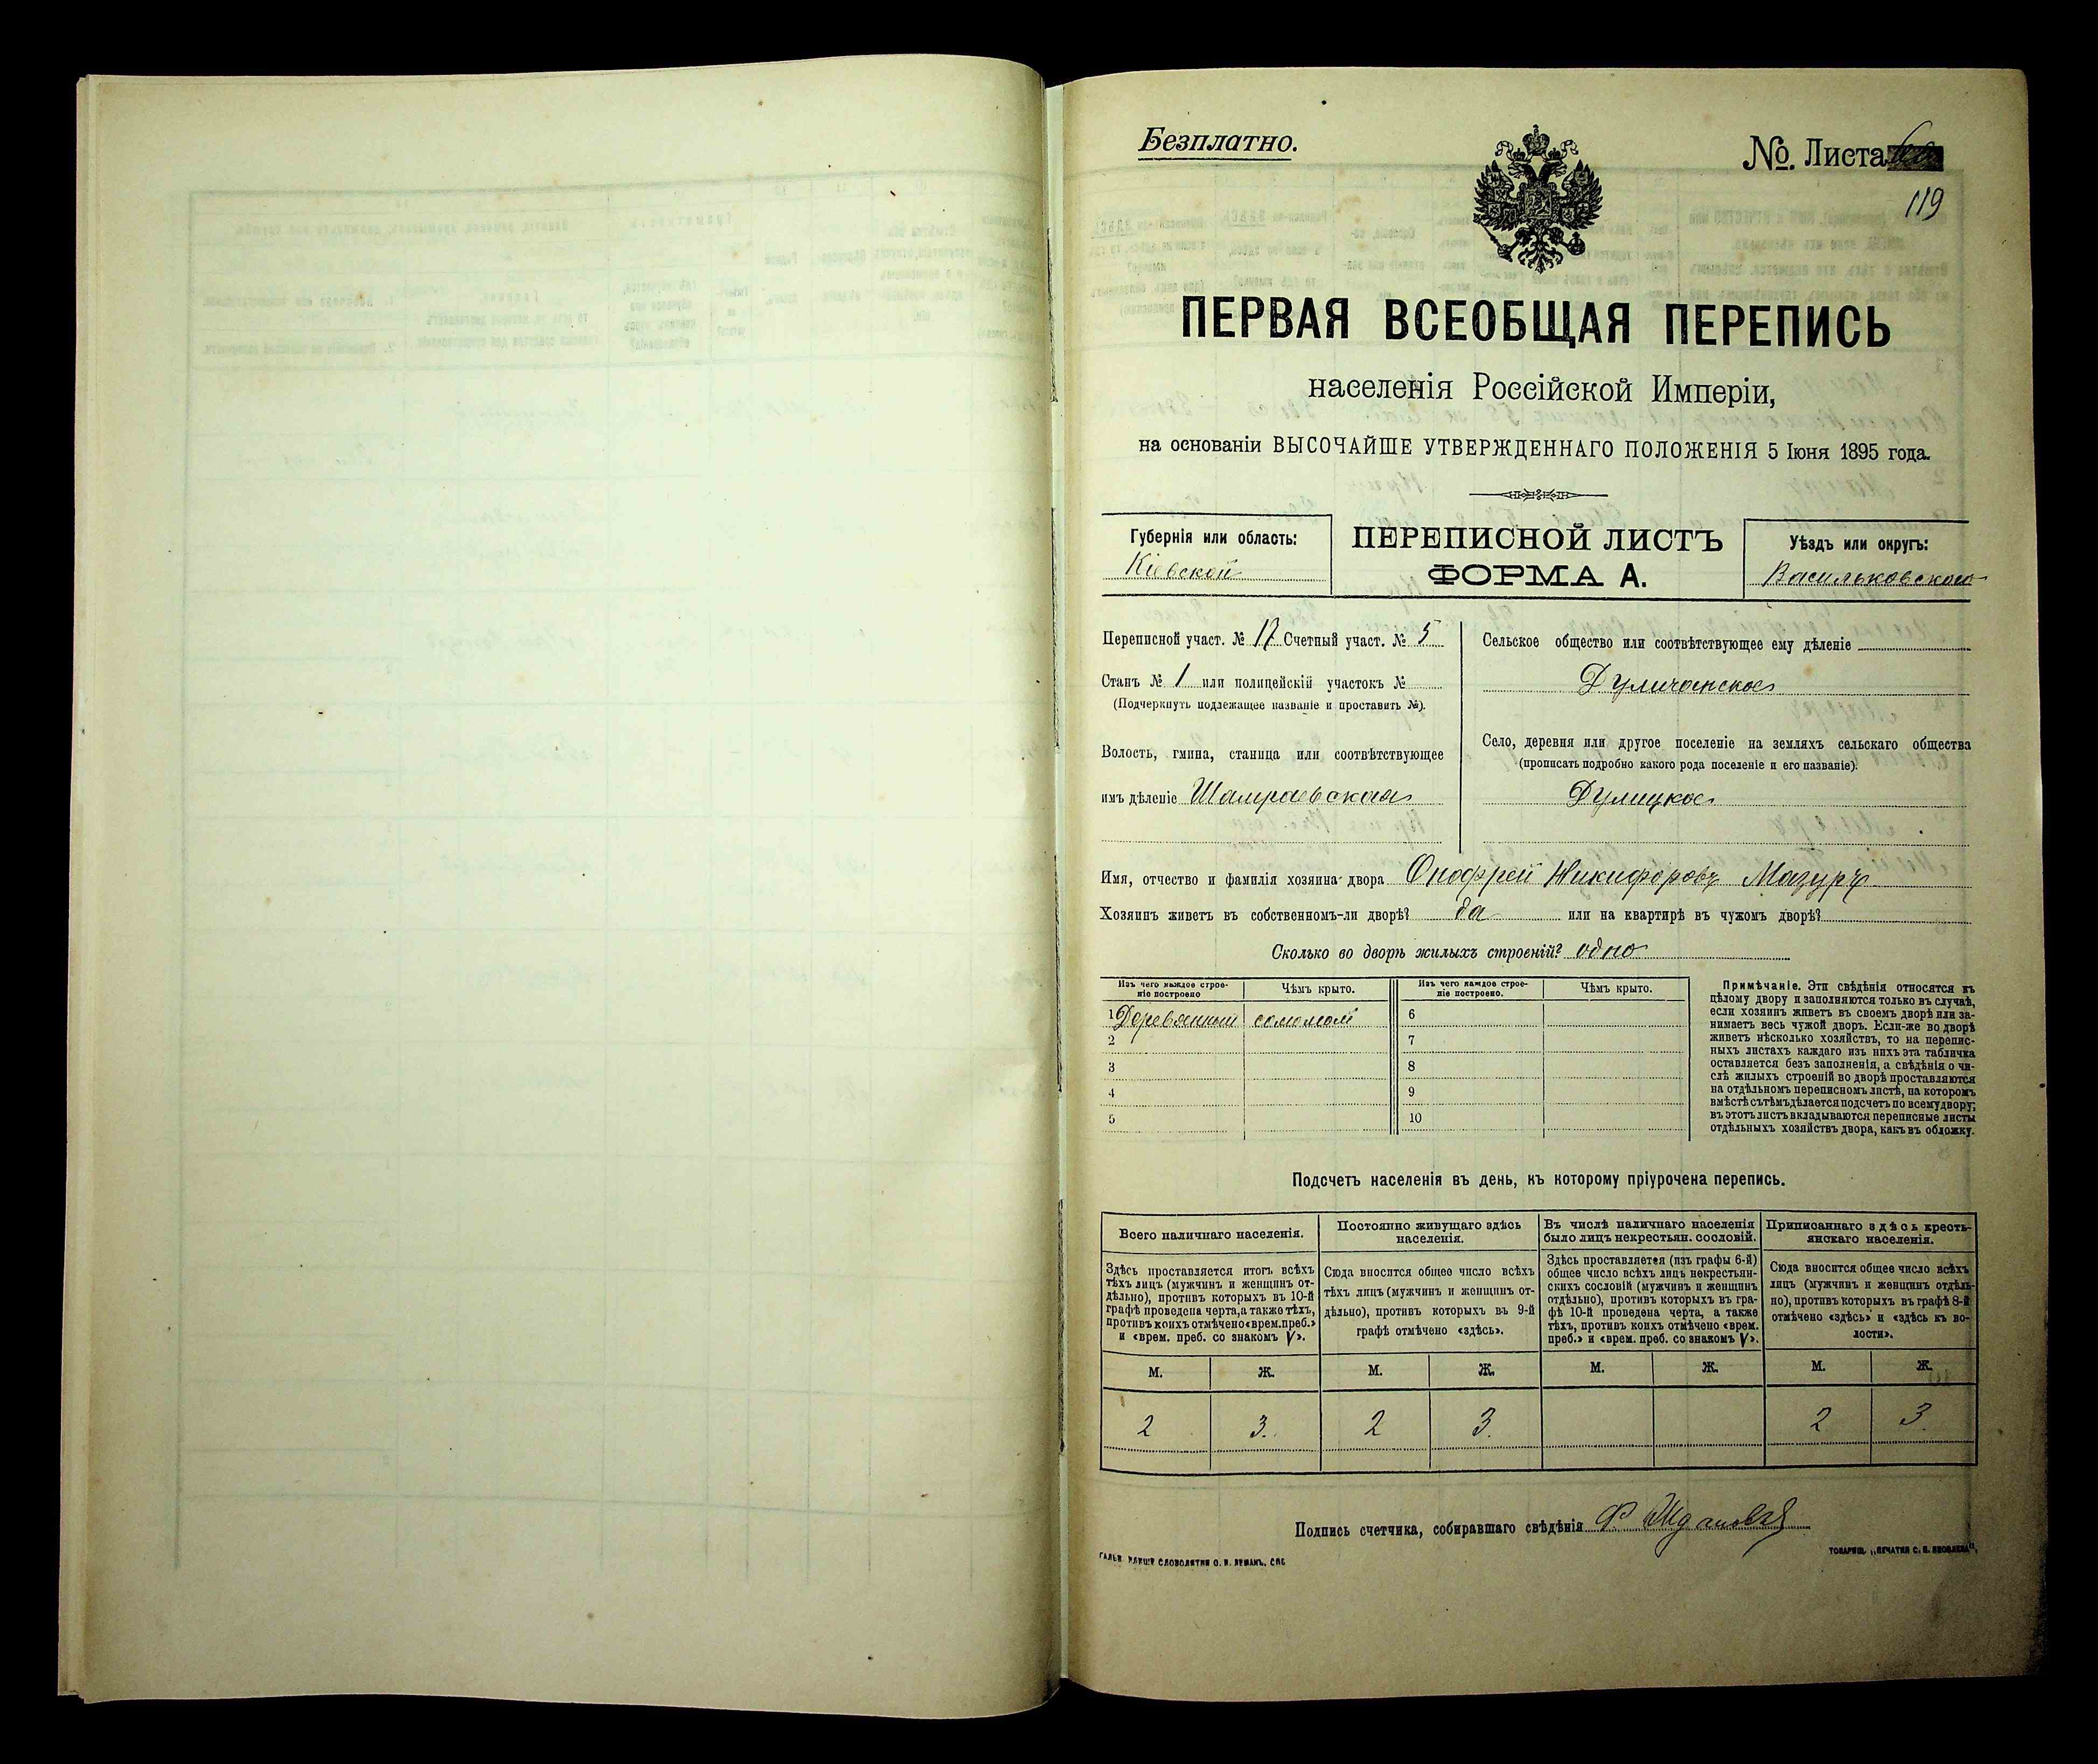 Безплатно.
№. Листа
119
ПЕРВАЯ ВСЕОБЩАЯ ПЕРЕПИСЬ
населенія Россійской Имперіи,
на основаніи ВЫСОЧАЙШЕ УТВЕРЖДЕННАГО ПОЛОЖЕНІЯ 5 Іюня 1895 года.
Губернія или область:
Кіевской
ПЕРЕПИСНОЙ ЛИСТЪ
ФОРМА А.
Уѣздъ или округъ:
Васильковскаго
Переписной участ. № 17 Счетный участ. № 5
Станъ № 1 или полицейскій участокъ №
(Подчеркнуть подлежащее названіе и проставить №).
Волость, гмина, станица или соотвѣтствующее
имъ дѣленіе Шамраевская
Сельское общество или соотвѣтствующее ему дѣленіе
Дуличанское
Село, деревня или другое поселеніе на земляхъ сельскаго общества
(прописать подробно какого рода поселеніе и его названіе):
Дулицкое
Имя, отчество и фамилія хозяина двора Онофрей Никифоровъ Мазуръ
Хозяинъ живетъ въ собственномъ-ли дворѣ? да или на квартирѣ въ чужомъ дворѣ?
Сколько во дворѣ жилыхъ строеній? одно
Изъ чего каждое строе-
ніе построено
Чѣмъ крыто.
Изъ чего каждое строе-
ніе построено.
Чѣмъ крыто.
1 Деревянный соломой
2
3
4
5
6
7
8
9
10
Примѣчаніе. Эти свѣдѣнія относятся къ
цѣлому двору и заполняются только въ случаѣ,
если хозяинъ живетъ въ своемъ дворѣ или за-
нимаетъ весь чужой дворъ. Если-же во дворѣ
живетъ нѣсколько хозяйствъ, то на перепис-
ныхъ листахъ каждаго изъ нихъ эта табличка
оставляется безъ заполненія, а свѣдѣнія о чи-
слѣ жилыхъ строеній во дворѣ проставляются
на отдѣльномъ переписномъ листѣ, на которомъ
вмѣстѣ сътѣмъ дѣлается подсчетъ по всему двору;
въ этотъ листъ вкладываются переписные листы
отдѣльныхъ хозяйствъ двора, какъ въ обложку.
Подсчетъ населенія въ день, къ которому пріурочена перепись.
Всего наличнаго населенія.
Здѣсь проставляется итогъ всѣхъ
тѣхъ лицъ (мужчинъ и женщинъ от-
дѣльно), противъ которыхъ въ 10-й
графѣ проведена черта, а также тѣхъ,
противъ коихъ отмѣчено «врем. преб.»
и «врем. преб. со знакомъ V».
Постоянно живущаго здѣсь
населенія.
Сюда вносится общее число всѣхъ
тѣхъ лицъ (мужчинъ и женщинъ от-
дѣльно), противъ которыхъ въ 9-й
графѣ отмѣчено «здѣсь».
Въ числѣ наличнаго населенія
было лицъ некрестьян. сословій.
Здѣсь проставляется (изъ графы 6-й)
общее число всѣхъ лицъ некрестьян-
скихъ сословій (мужчинъ и женщинъ
отдѣльно), противъ которыхъ въ гра-
фѣ 10-й проведена черта, а также
тѣхъ, противъ коихъ отмѣчено «врем.
преб.» и «врем. преб. со знакомъ V».
Приписаннаго здѣсь кресть-
янскаго населенія.
Сюда вносится общее число всѣхъ
лицъ (мужчинъ и женщинъ отдѣль-
но), противъ которыхъ въ графѣ 8-й
отмѣчено «здѣсь» и «здѣсь къ во-
лости».
М. Ж. М. Ж. М. Ж. М. Ж.
2 3. 2 3. 2 3
Подпись счетчика, собиравшаго свѣдѣнія
СЛОВОЛИТНИ О. И. ЛЕМАНЪ, СПБ.
ТОВАРИЩ. „ПЕЧАТНЯ С. П. ЯКОВЛЕВА“.